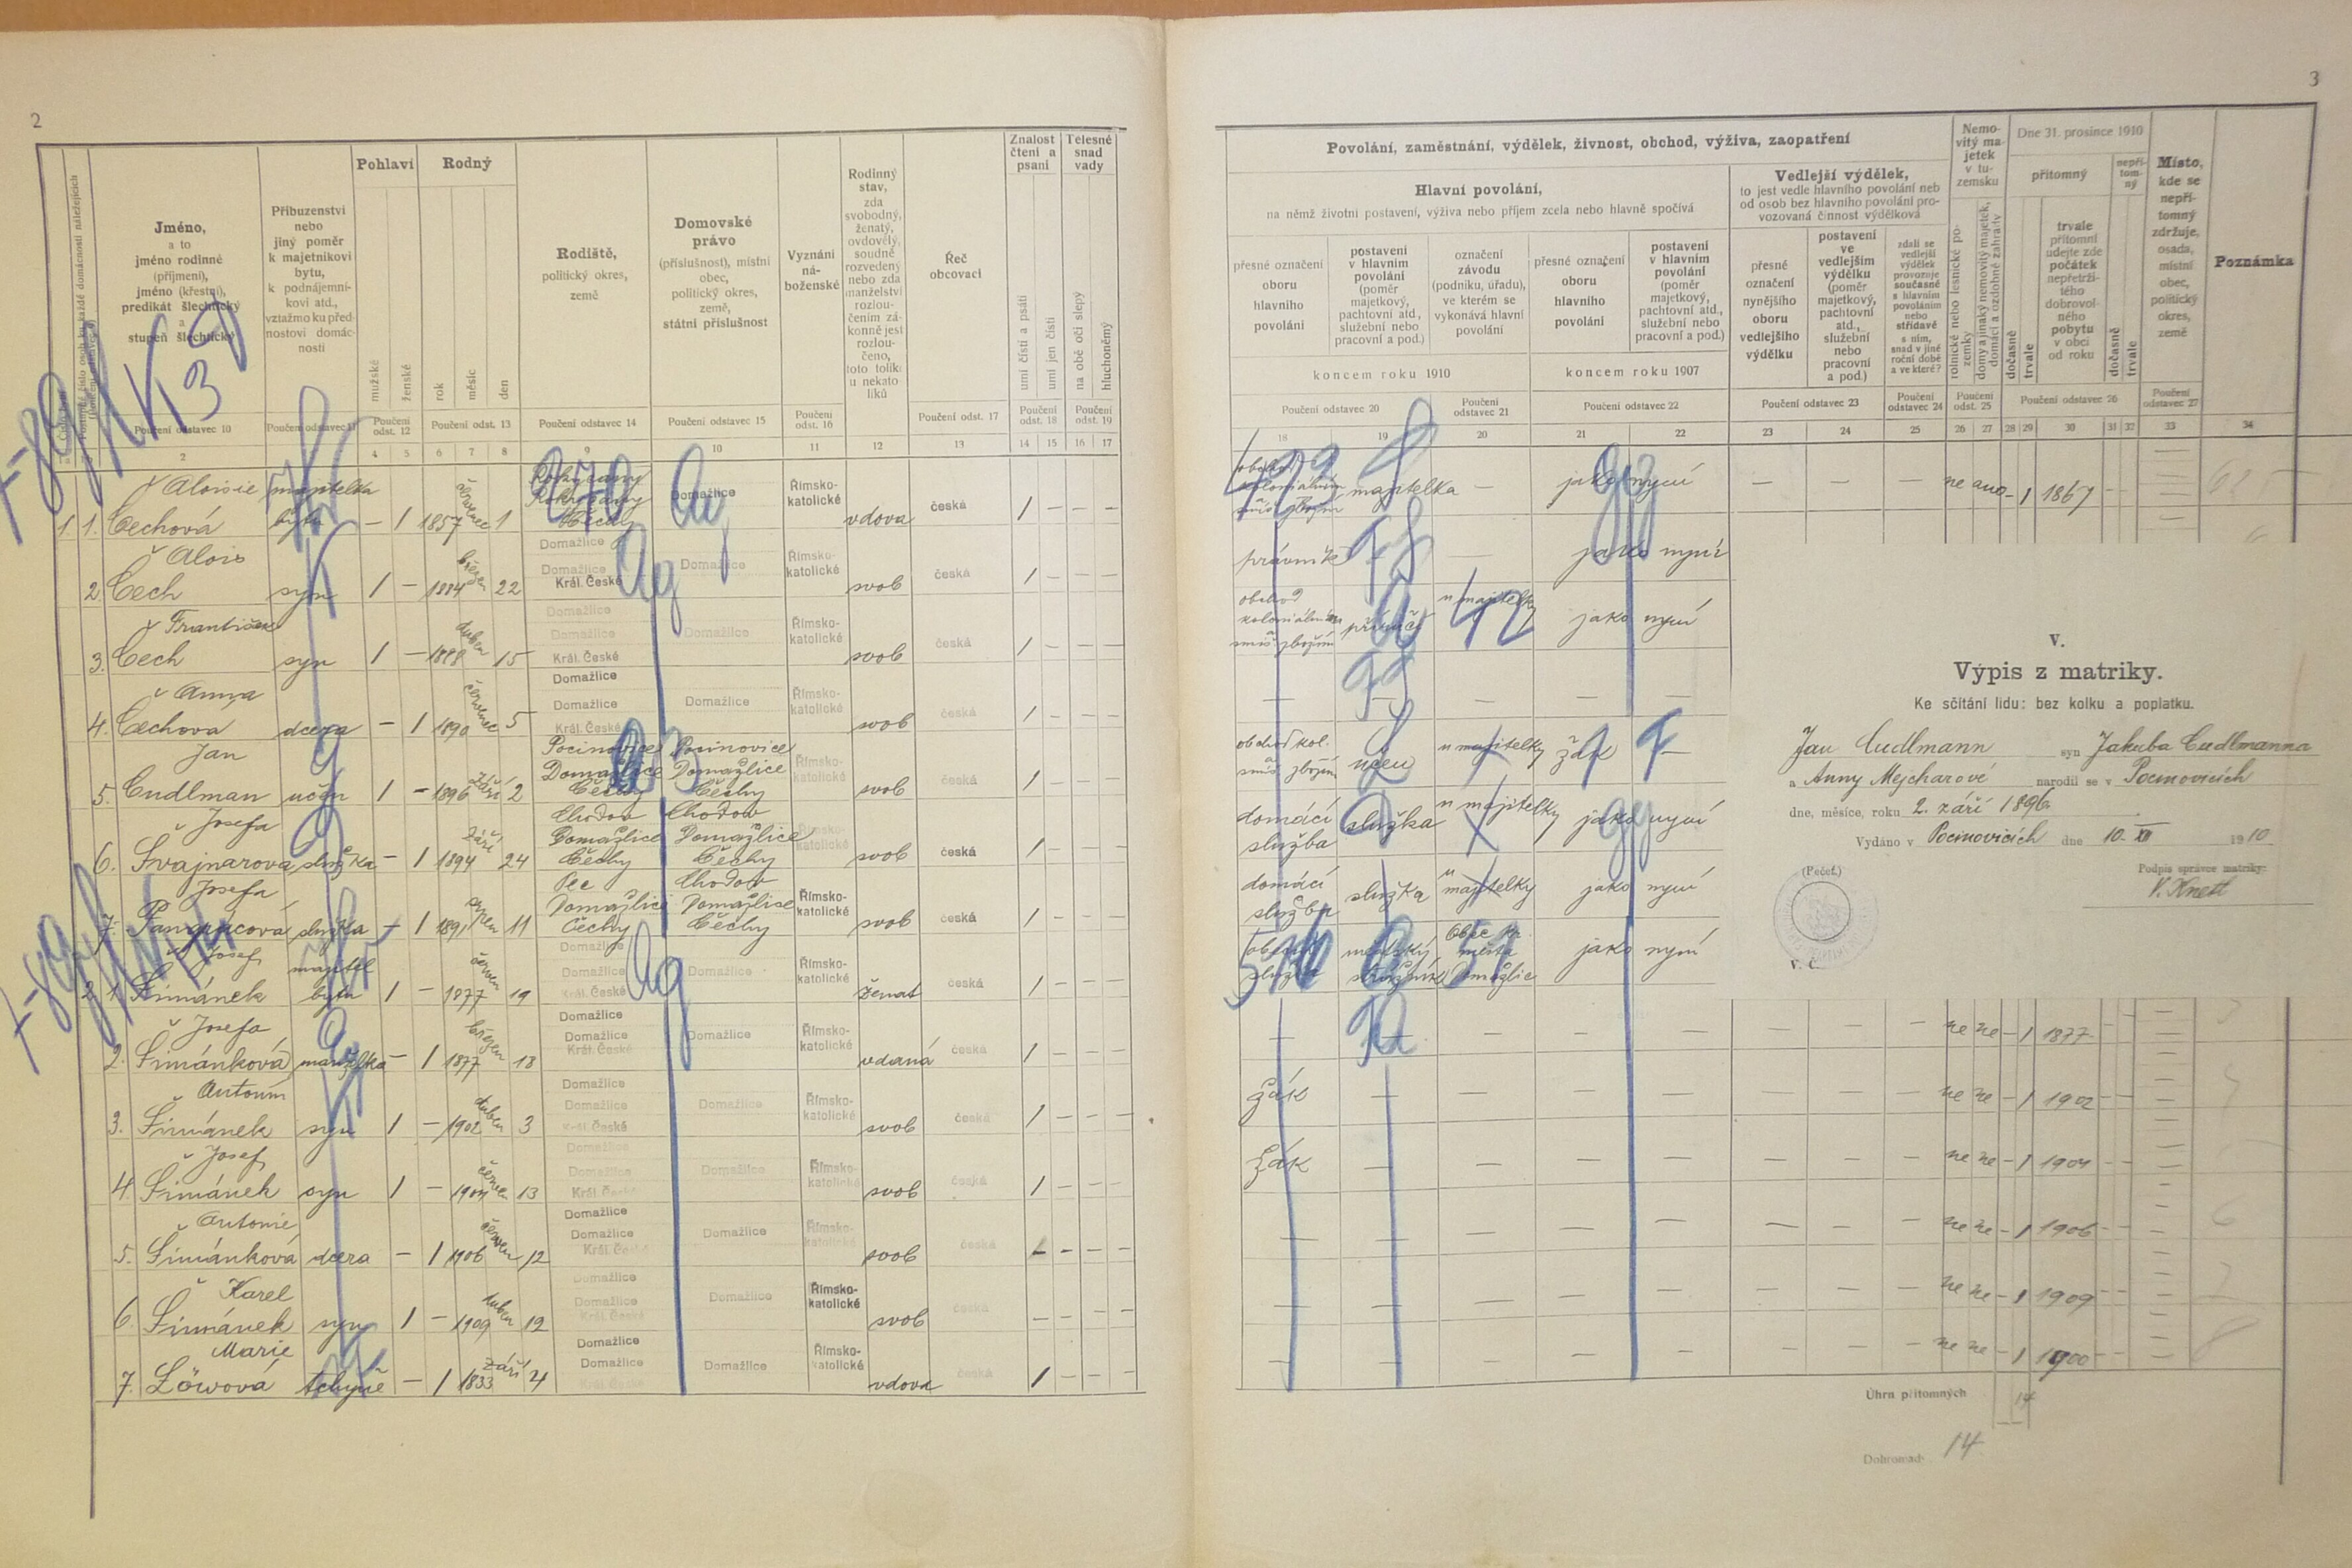 2
3
Číslo bytu
Jméno,
a to
jméno rodinné
(příjmení),
jméno (křestní),
predikát šlechtický
a
stupeň šlechtický
Příbuzenství
nebo
jiný poměr
k majetníkovi
bytu,
k podnájemní-
kovi atd.,
vztažmo ku před-
nostovi domác-
nosti
Pohlaví
mužské
ženské
Rodný
rok
měsíc
den
Rodiště,
politický okres,
země
Domovské
právo
(příslušnost), místní
obec,
politický okres,
země,
státní příslušnost
Vyznání
ná-
boženské
Rodinný
stav,
zda
svobodný,
ženatý,
ovdovělý,
soudně
rozvedený
nebo zda
manželství
rozlou-
čením zá-
konně jest
rozlou-
čeno,
toto toliko
u nekato-
líků
Řeč
obcovací
Znalost
čtení a
psaní
umí čísti a psáti
umí jen čísti
Tělesné
snad
vady
na obě oči slepý
hluchoněmý
Poučení odstavec 10
Poučení odstavec 11
Poučení
odst. 12
Poučení odst. 13
Poučení odstavec 14
Poučení odstavec 15
Poučení
odst. 16
Poučení odst. 17
Poučení
odst. 18
Poučení
odst. 19
2 4 5 6 7 8 9 10 11 12 13 14 15 16 17
Povolání, zaměstnání, výdělek, živnost, obchod, výživa, zaopatření
Hlavní povolání,
na němž životní postavení, výživa nebo příjem zcela nebo hlavně spočívá
přesné označení
oboru
hlavního
povolání
postavení
v hlavním
povolání
(poměr
majetkový,
pachtovní atd.,
služební nebo
pracovní a pod.)
označení
závodu
(podniku, úřadu),
ve kterém se
vykonává hlavní
povolání
koncem roku 1910
přesné označení
oboru
hlavního
povolání
postavení
v hlavním
povolání
(poměr
majetkový,
pachtovní atd.,
služební nebo
pracovní a pod.)
koncem roku 1907
Vedlejší výdělek,
to jest vedle hlavního povolání neb
od osob bez hlavního povolání pro-
vozovaná činnost výdělková
přesné
označení
nynějšího
oboru
vedlejšího
výdělku
postavení
ve
vedlejším
výdělku
(poměr
majetkový,
pachtovní
atd.,
služební
nebo
pracovní
a pod.)
zdali se
vedlejší
výdělek
provozuje
současně
s hlavním
povoláním
nebo
střídavě
s ním,
snad v jiné
roční době
a ve které?
Nemo-
vitý ma-
jetek
v tu-
zemsku
rolnické nebo lesnické po-
zemky
domy a jinaký nemovitý majetek,
domácí a ozdobné zahrady
Dne 31. prosince 1910
přítomný
dočasně
trvale
trvale
přítomní
udejte zde
počátek
nepřetrži-
tého
dobrovol-
ného
pobytu
v obci
od roku
nepří-
tom-
ný
dočasně
trvale
Místo,
kde se
nepří-
tomný
zdržuje,
osada,
místní
obec,
politický
okres,
země
Poznámka
Poučení odstavec 20
Poučení
odstavec 21
Poučení odstavec 22
Poučení odstavec 23
Poučení
odstavec 24
Poučení
odst. 25
Poučení odstavec 26
Poučení
odstavec 27
18 19 20 21 22 23 24 25 26 27 28 29 30 31 32 33 34
Aloisie majitelka Rokycany
1. 1. Čechová bytu – 1 1857 červenec 1 Rokycany Čechy Domažlice Římsko-katolické vdova česká 1 – – –
majitelka – jako nyní – – – ne ano – 1 1867 – –
Alois
2. Čech syn 1 – 1884 březen 22 Domažlice Domažlice Král. České Domažlice Římsko-katolické svob česká 1 – – –
právník — jako nyní
František
3. Čech syn 1 – 1888 duben 15 Domažlice Domažlice Král. České Domažlice Římsko-katolické svob česká 1 – – –
obchod koloniálním a smíš. zbožím příručí u majitelky jako nyní
Anna
4. Čechova dcera – 1 1890 červenec 5 Domažlice Domažlice Král. České Domažlice Římsko-katolické svob česká 1 – – –
Jan
5. Cudlman učen 1 – 1896 září 2 Pocinovice Domažlice Čechy Pocinovice Domažlice Čechy Římsko-katolické svob česká 1 – – –
obchod kol. a smíš. zbožím učen u majitelky žák –
Josefa
6. Švajnarová služka – 1 1894 září 24 Chodov Domažlice Čechy Chodov Domažlice Čechy Římsko-katolické svob česká 1 – – –
domácí služba služka u majitelky jako nyní
Josefa
7. Pangrácová služka – 1 1891 srpen 11 Pec Domažlice Čechy Chodov Domažlice Čechy Římsko-katolické svob česká 1 – – –
domácí služba služka u majitelky jako nyní
Josef majitel
2. 1. Šimánek bytu 1 – 1877 červen 19 Domažlice Domažlice Král. České Domažlice Římsko-katolické ženat česká 1 – – –
městský strážník Obec kr. města Domažlic jako nyní
Josefa
2. Šimánková manželka – 1 1877 březen 13 Domažlice Domažlice Král. České Domažlice Římsko-katolické vdaná česká 1 – – –
– – – – – – – – ne ne – 1 1877 – –
Antonín
3. Šimánek syn 1 – 1902 duben 3 Domažlice Domažlice Král. České Domažlice Římsko-katolické svob česká 1 – – –
žák – – – – – – – ne ne – 1 1902 – –
Josef
4. Šimánek syn 1 – 1904 červen 13 Domažlice Domažlice Král. České Domažlice Římsko-katolické svob česká 1 – – –
žák – – – – – – – ne ne – 1 1904 – –
Antonie
5. Šimánková dcera – 1 1906 červen 12 Domažlice Domažlice Král. České Domažlice Římsko-katolické svob česká – – – –
– – – – – – – – ne ne – 1 1906 – –
Karel
6. Šimánek syn 1 – 1909 duben 19 Domažlice Domažlice Král. České Domažlice Římsko-katolické svob česká – – – –
– – – – – – – – ne ne – 1 1909 – –
Marie
7. Löwová tchyně – 1 1833 září 4 Domažlice Domažlice Král. České Domažlice Římsko-katolické vdova česká 1 – – –
– – – – – – – – ne ne – 1 1900 – –
Úhrn přítomných 14
Dohromady 14
V.
Výpis z matriky.
Ke sčítání lidu: bez kolku a poplatku.
Jan Cudlmann syn Jakuba Cudlmanna
a Anny Mejcharové narodil se v Pocinovicích
dne, měsíce, roku 2. září 1896
Vydáno v Pocinovicích dne 10. XII 1910
(Pečeť.)
Podpis správce matriky:
V. Knett
V. Č.